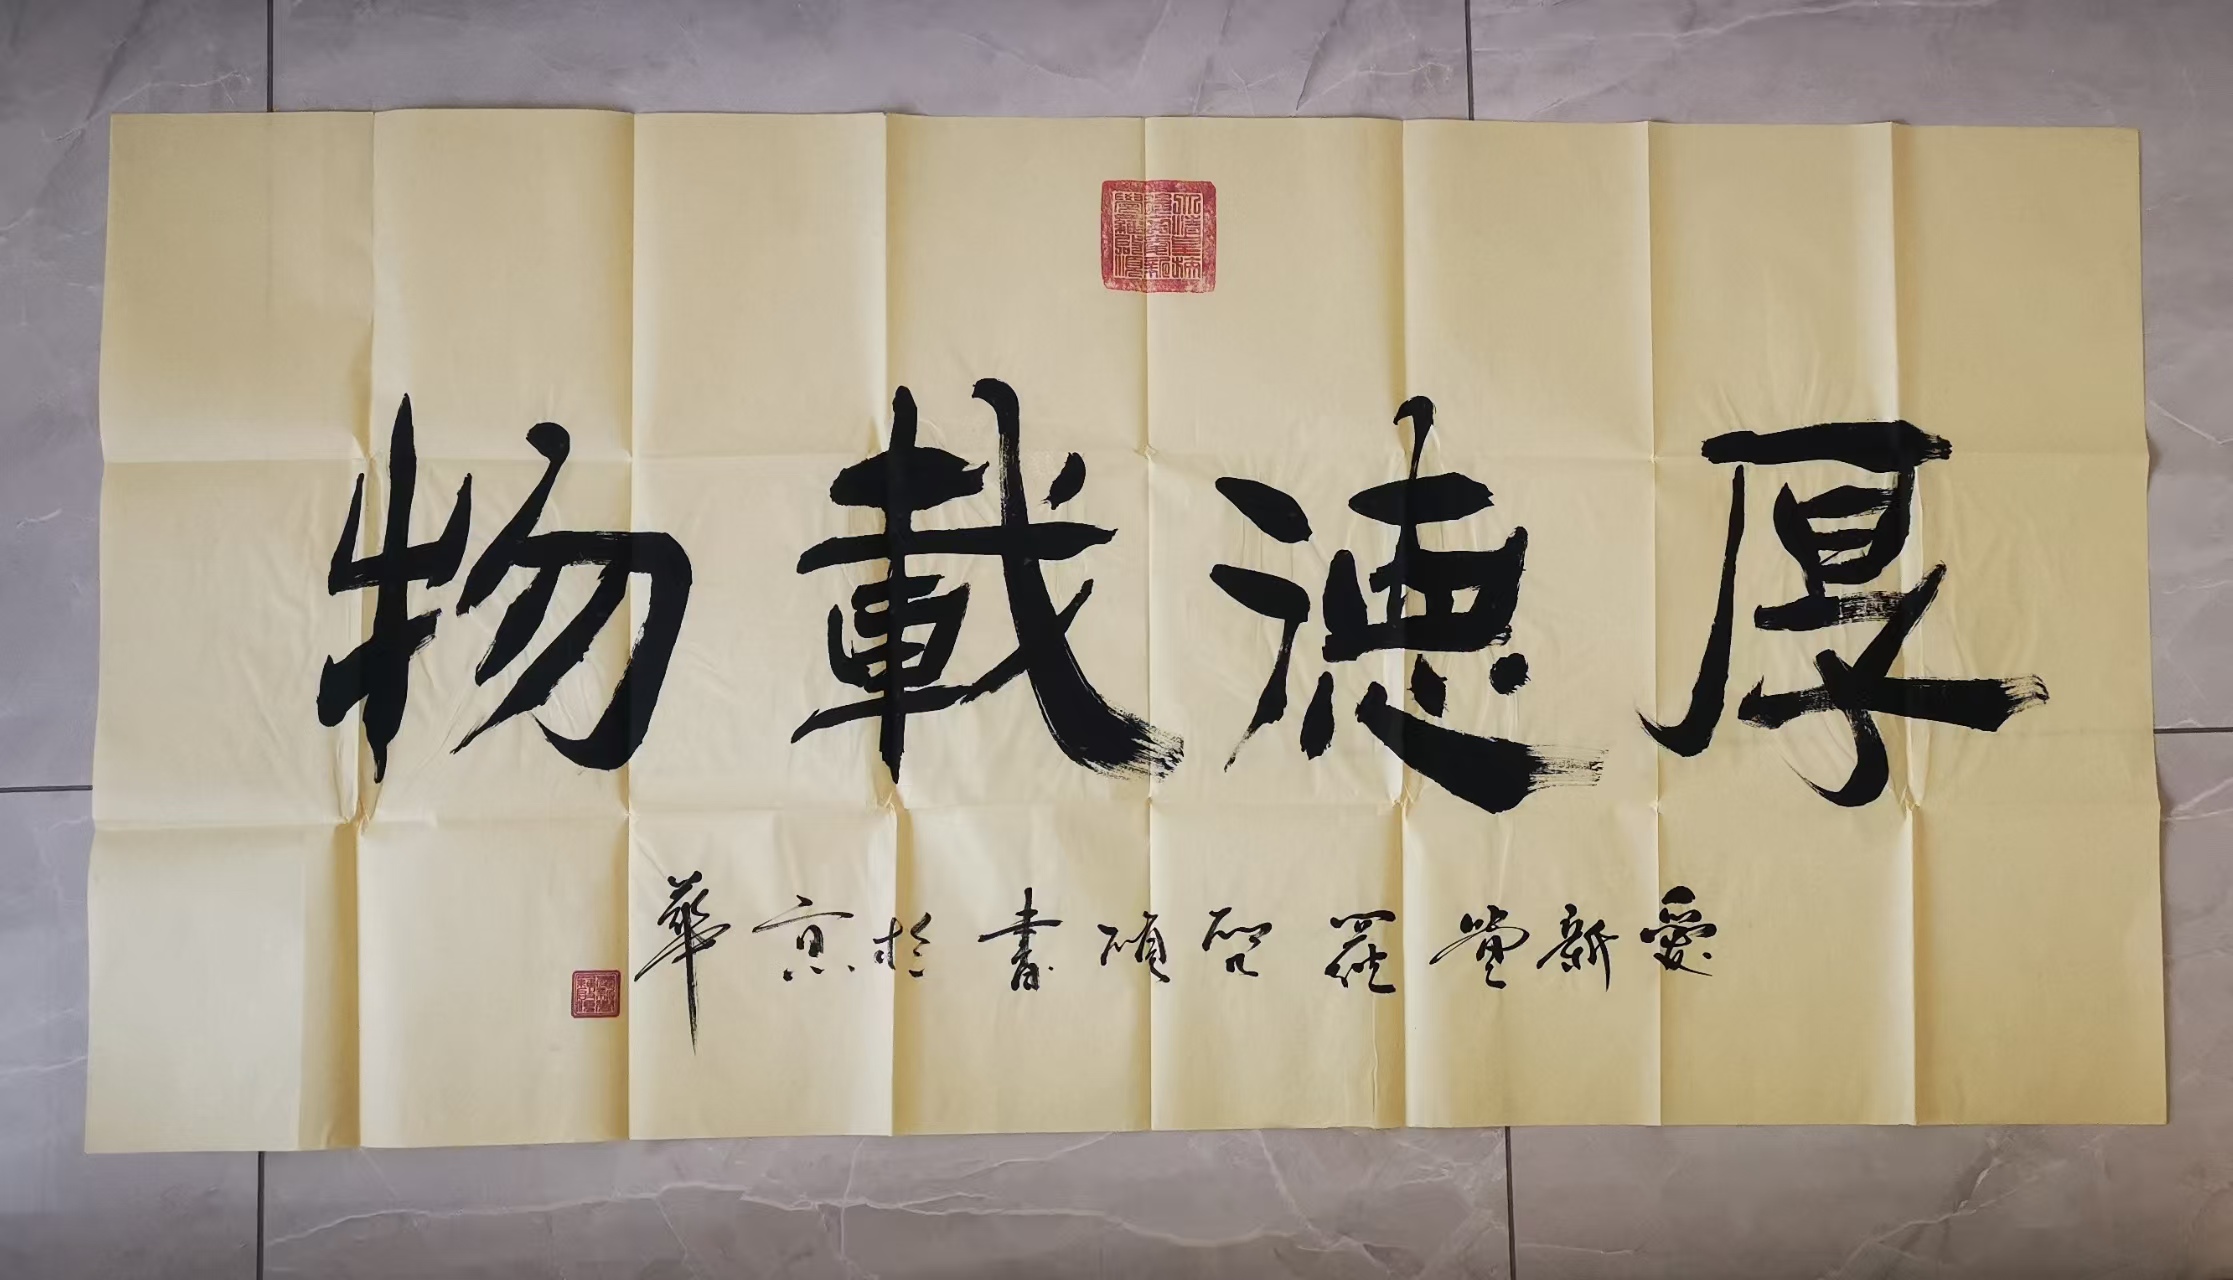 厚德載物
愛新覺羅啓碩書於京華